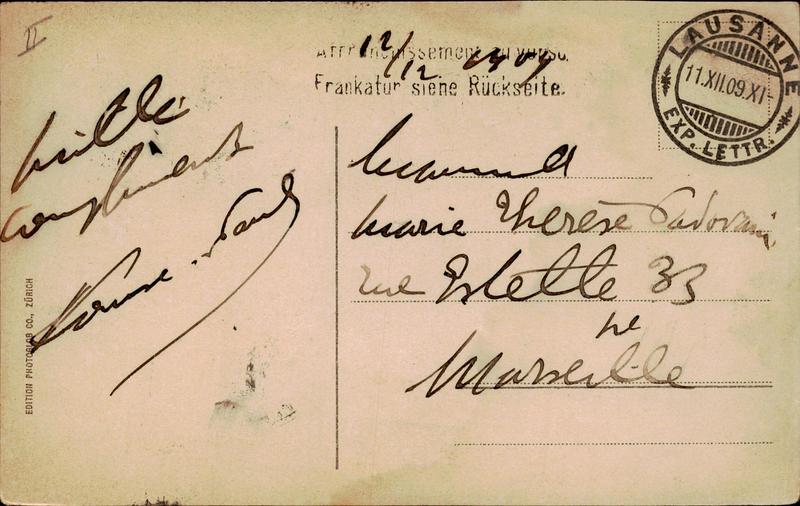 II
12/12 1909
Affranchissement au verso.
Frankatur siehe Rückseite.
LAUSANNE
11.XII.09.XI-
EXP. LETTR.
mille
compliments
Louise
Marie Thérèse Padovani
rue Estelle 33
Marseille
EDITION PHOTOGLOB CO., ZÜRICH